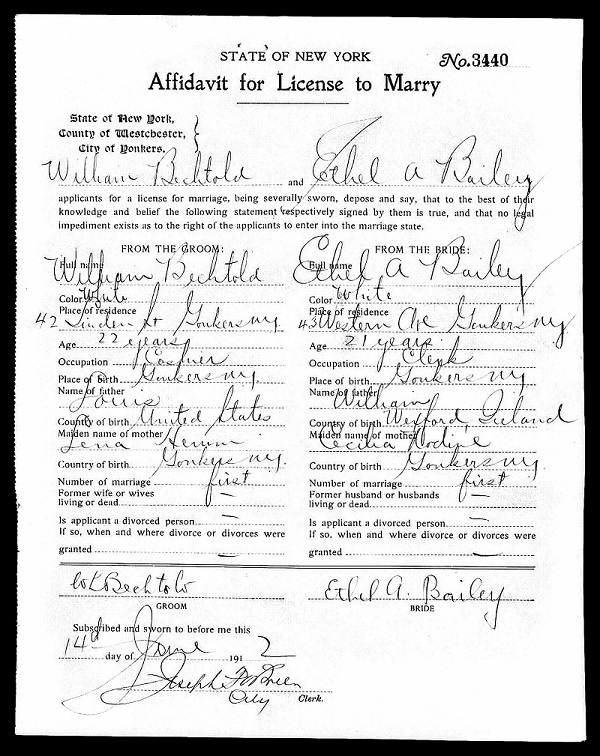 STATE OF NEW YORK
No. 3440
Affidavit for License to Marry
State of New York,
County of Westchester,
City of Yonkers.
William Bechtold and Ethel A Bailey
applicants for a license for marriage, being severally sworn, depose and say, that to the best of their
knowledge and belief the following statement respectively signed by them is true, and that no legal
impediment exists as to the right of the applicants to enter into the marriage state.
FROM THE GROOM:
Full name William Bechtold
Color White
Place of residence
42 Linden St Yonkers NY
Age 22 years
Occupation
Place of birth Yonkers NY
Name of father
Louis
Country of birth United States
Maiden name of mother
Lena
Country of birth Yonkers NY.
Number of marriage first
Former wife or wives
living or dead —
Is applicant a divorced person —
If so, when and where divorce or divorces were
granted —
FROM THE BRIDE:
Full name Ethel A Bailey
Color White
Place of residence
43 Western Ave Yonkers NY
Age 21 years.
Occupation Clerk
Place of birth Yonkers NY
Name of father
William
Country of birth Wexford, Ireland
Maiden name of mother
Cecilia
Country of birth Yonkers NY.
Number of marriage first
Former husband or husbands
living or dead —
Is applicant a divorced person —
If so, when and where divorce or divorces were
granted —
Wm Bechtold
GROOM
Ethel A. Bailey
BRIDE
Subscribed and sworn to before me this
14th day of June 1912
Joseph F O'Brien
City Clerk.